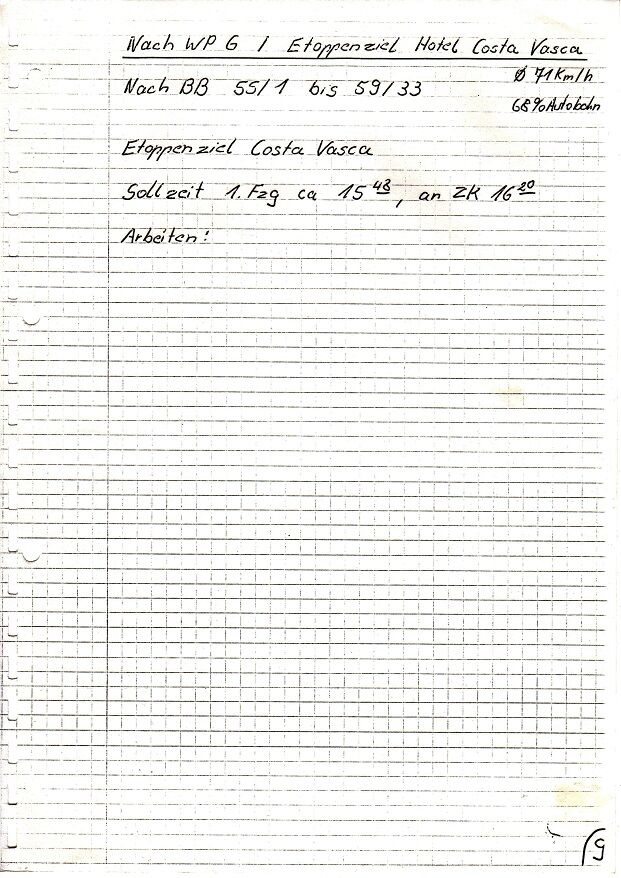 Nach WP 6 / Etappenziel Hotel Costa Vasca
Ø 71 Km/h
Nach BB 55/1 bis 59/33
68% Autobahn
Etappenziel Costa Vasca
Sollzeit 1. Fzg ca 15 48, an ZK 16 20
Arbeiten:
9